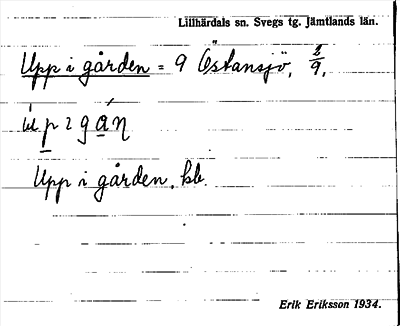 Lillhärdals sn. Svegs tg. Jämtlands län.
Upp i gården = 9 Östansjö, 2/9,
Upp i gården. kb.
Erik Eriksson 1934.